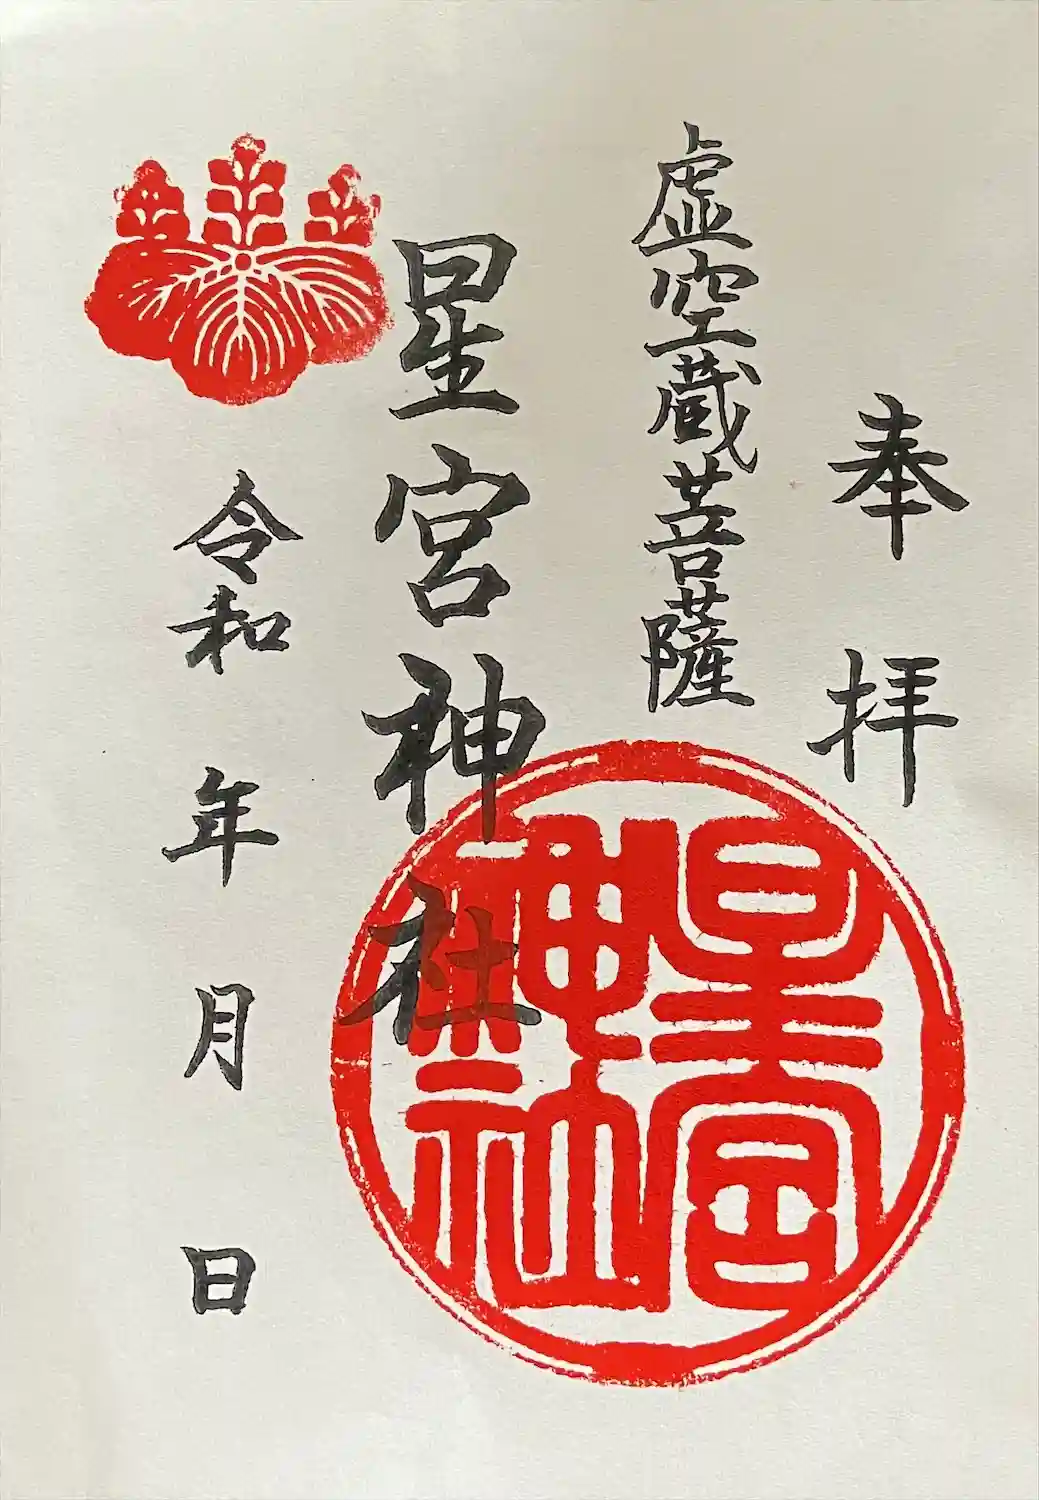 奉拝
虚空蔵菩薩
星宮神社
令和 年 月 日
星宮神社